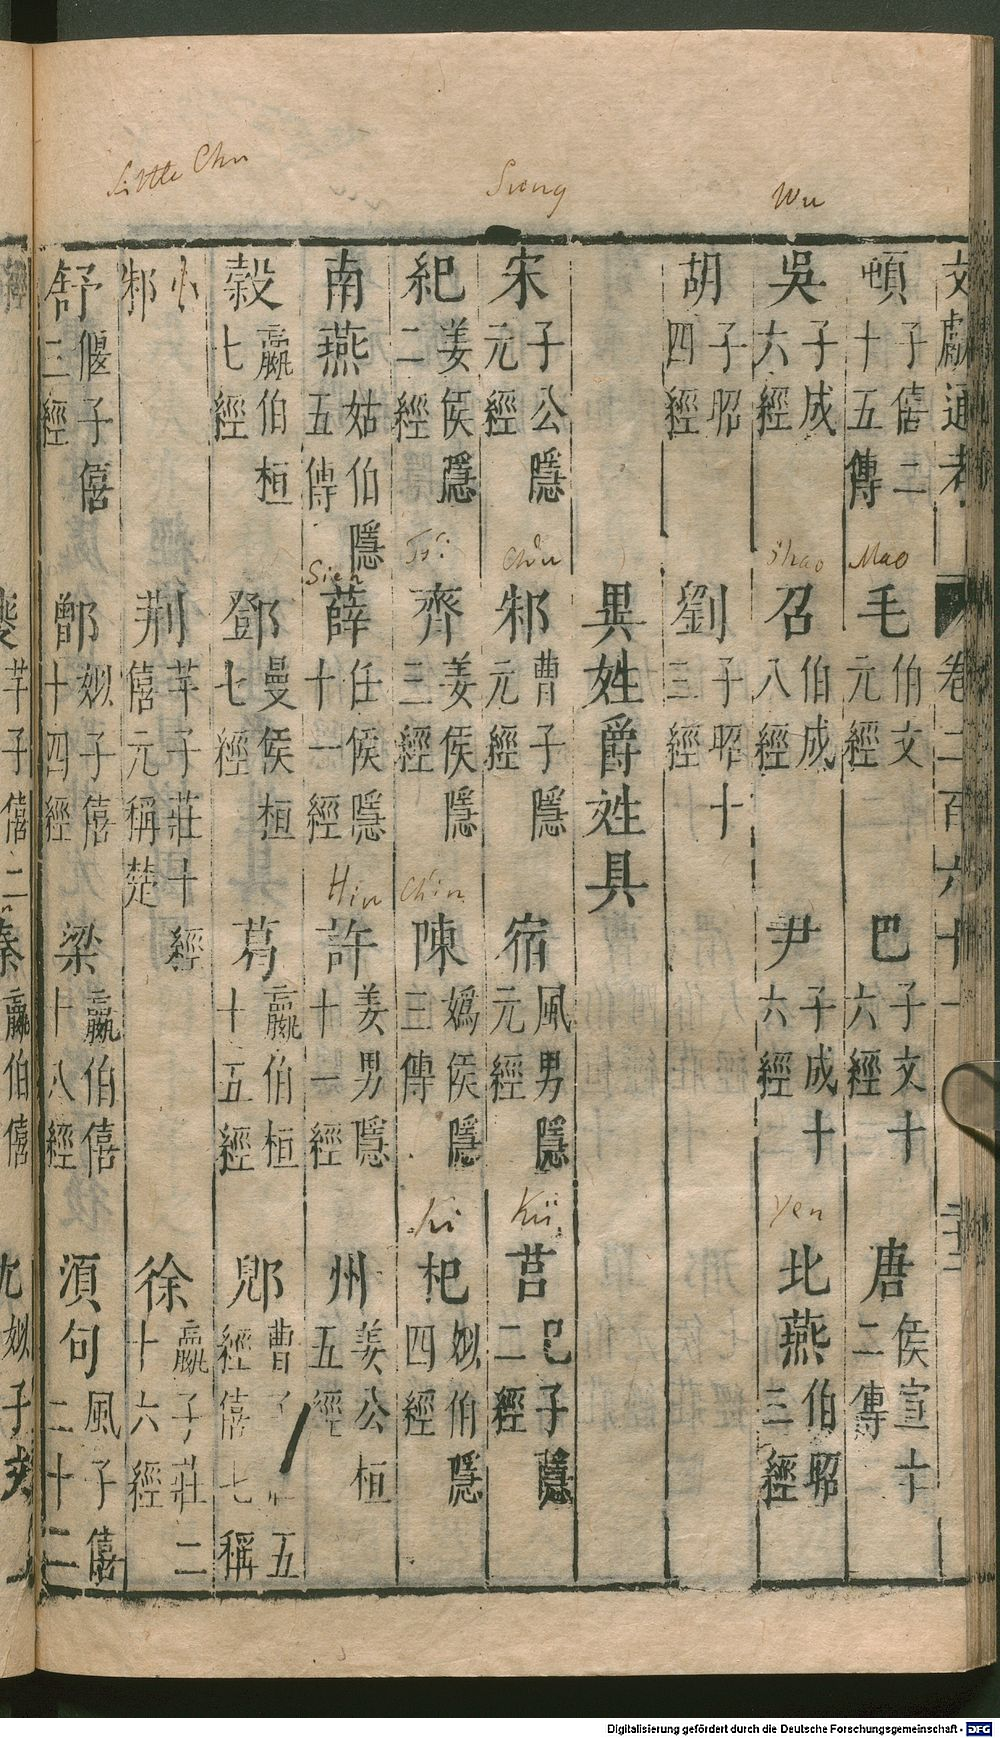 Little Chu
Sung
Wu
文獻通考 卷二百六十一
頓 子僖二十五傳 Mao 毛 伯文元經 巴 子文十六經 唐 侯宣十二傳
吳 子成六經 Shao 召 伯成八經 尹 子成十六經 Yen 北燕 伯昭三經
胡 子昭四經 劉 子昭十三經
異姓爵姓具
宋 子公隱元經 Chu 邾 曹子隱元經 宿 風男隱元經 Kü 莒 己子隱二經
紀 姜侯隱二經 Ts'i 齊 姜侯隱三經 Ch'in 陳 媯侯隱三傳 Ki 杞 姒伯隱四經
南燕 姞伯隱五傳 Sieh 薛 任侯隱十一經 Hiu 許 姜男隱十一經 州 姜公桓五經
穀 嬴伯桓七經 鄧 曼侯桓七經 葛 嬴伯桓十五經 郳 曹子莊五經僖七稱
小邾 荆 芊子莊十經僖元稱楚 徐 嬴子莊二十六經
舒 偃子僖三經 鄫 姒子僖十四經 梁 嬴伯僖十八經 須句 風子僖二十二
經 夔 芊子僖二 秦 嬴伯僖
Digitalisierung gefördert durch die Deutsche Forschungsgemeinschaft - DFG